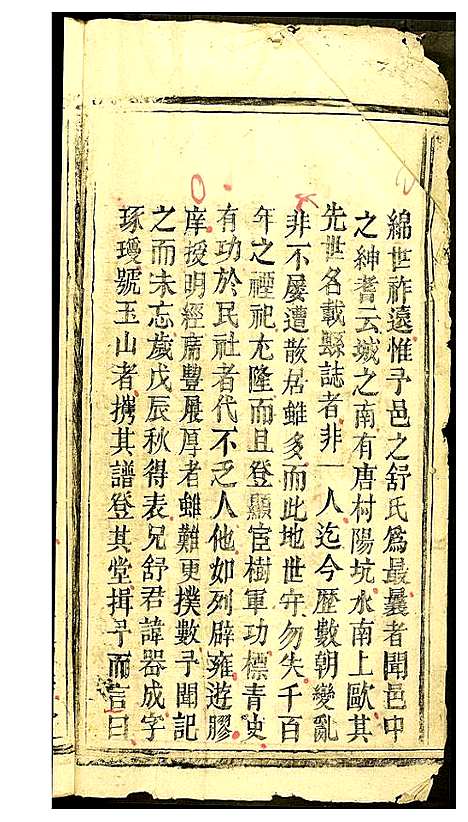 綿世祚遠惟予邑之舒氏為最曩者聞邑中
之紳耆云城之南有唐村陽坑水南上歐其
先世名載縣誌者非一人迄今歷數朝變亂
非不屢遭散居雖多而此地世守勿失千百
年之禋祀尤隆而且登顯宦樹軍功標青史
有功於民社者代不乏人他如列辟雍遊膠
庠授明經席豐履厚者雖難更撲數予聞記
之而未忘歲戊辰秋得表兄舒君諱器成字
琢瓊號玉山者攜其譜登其堂揖予而言曰